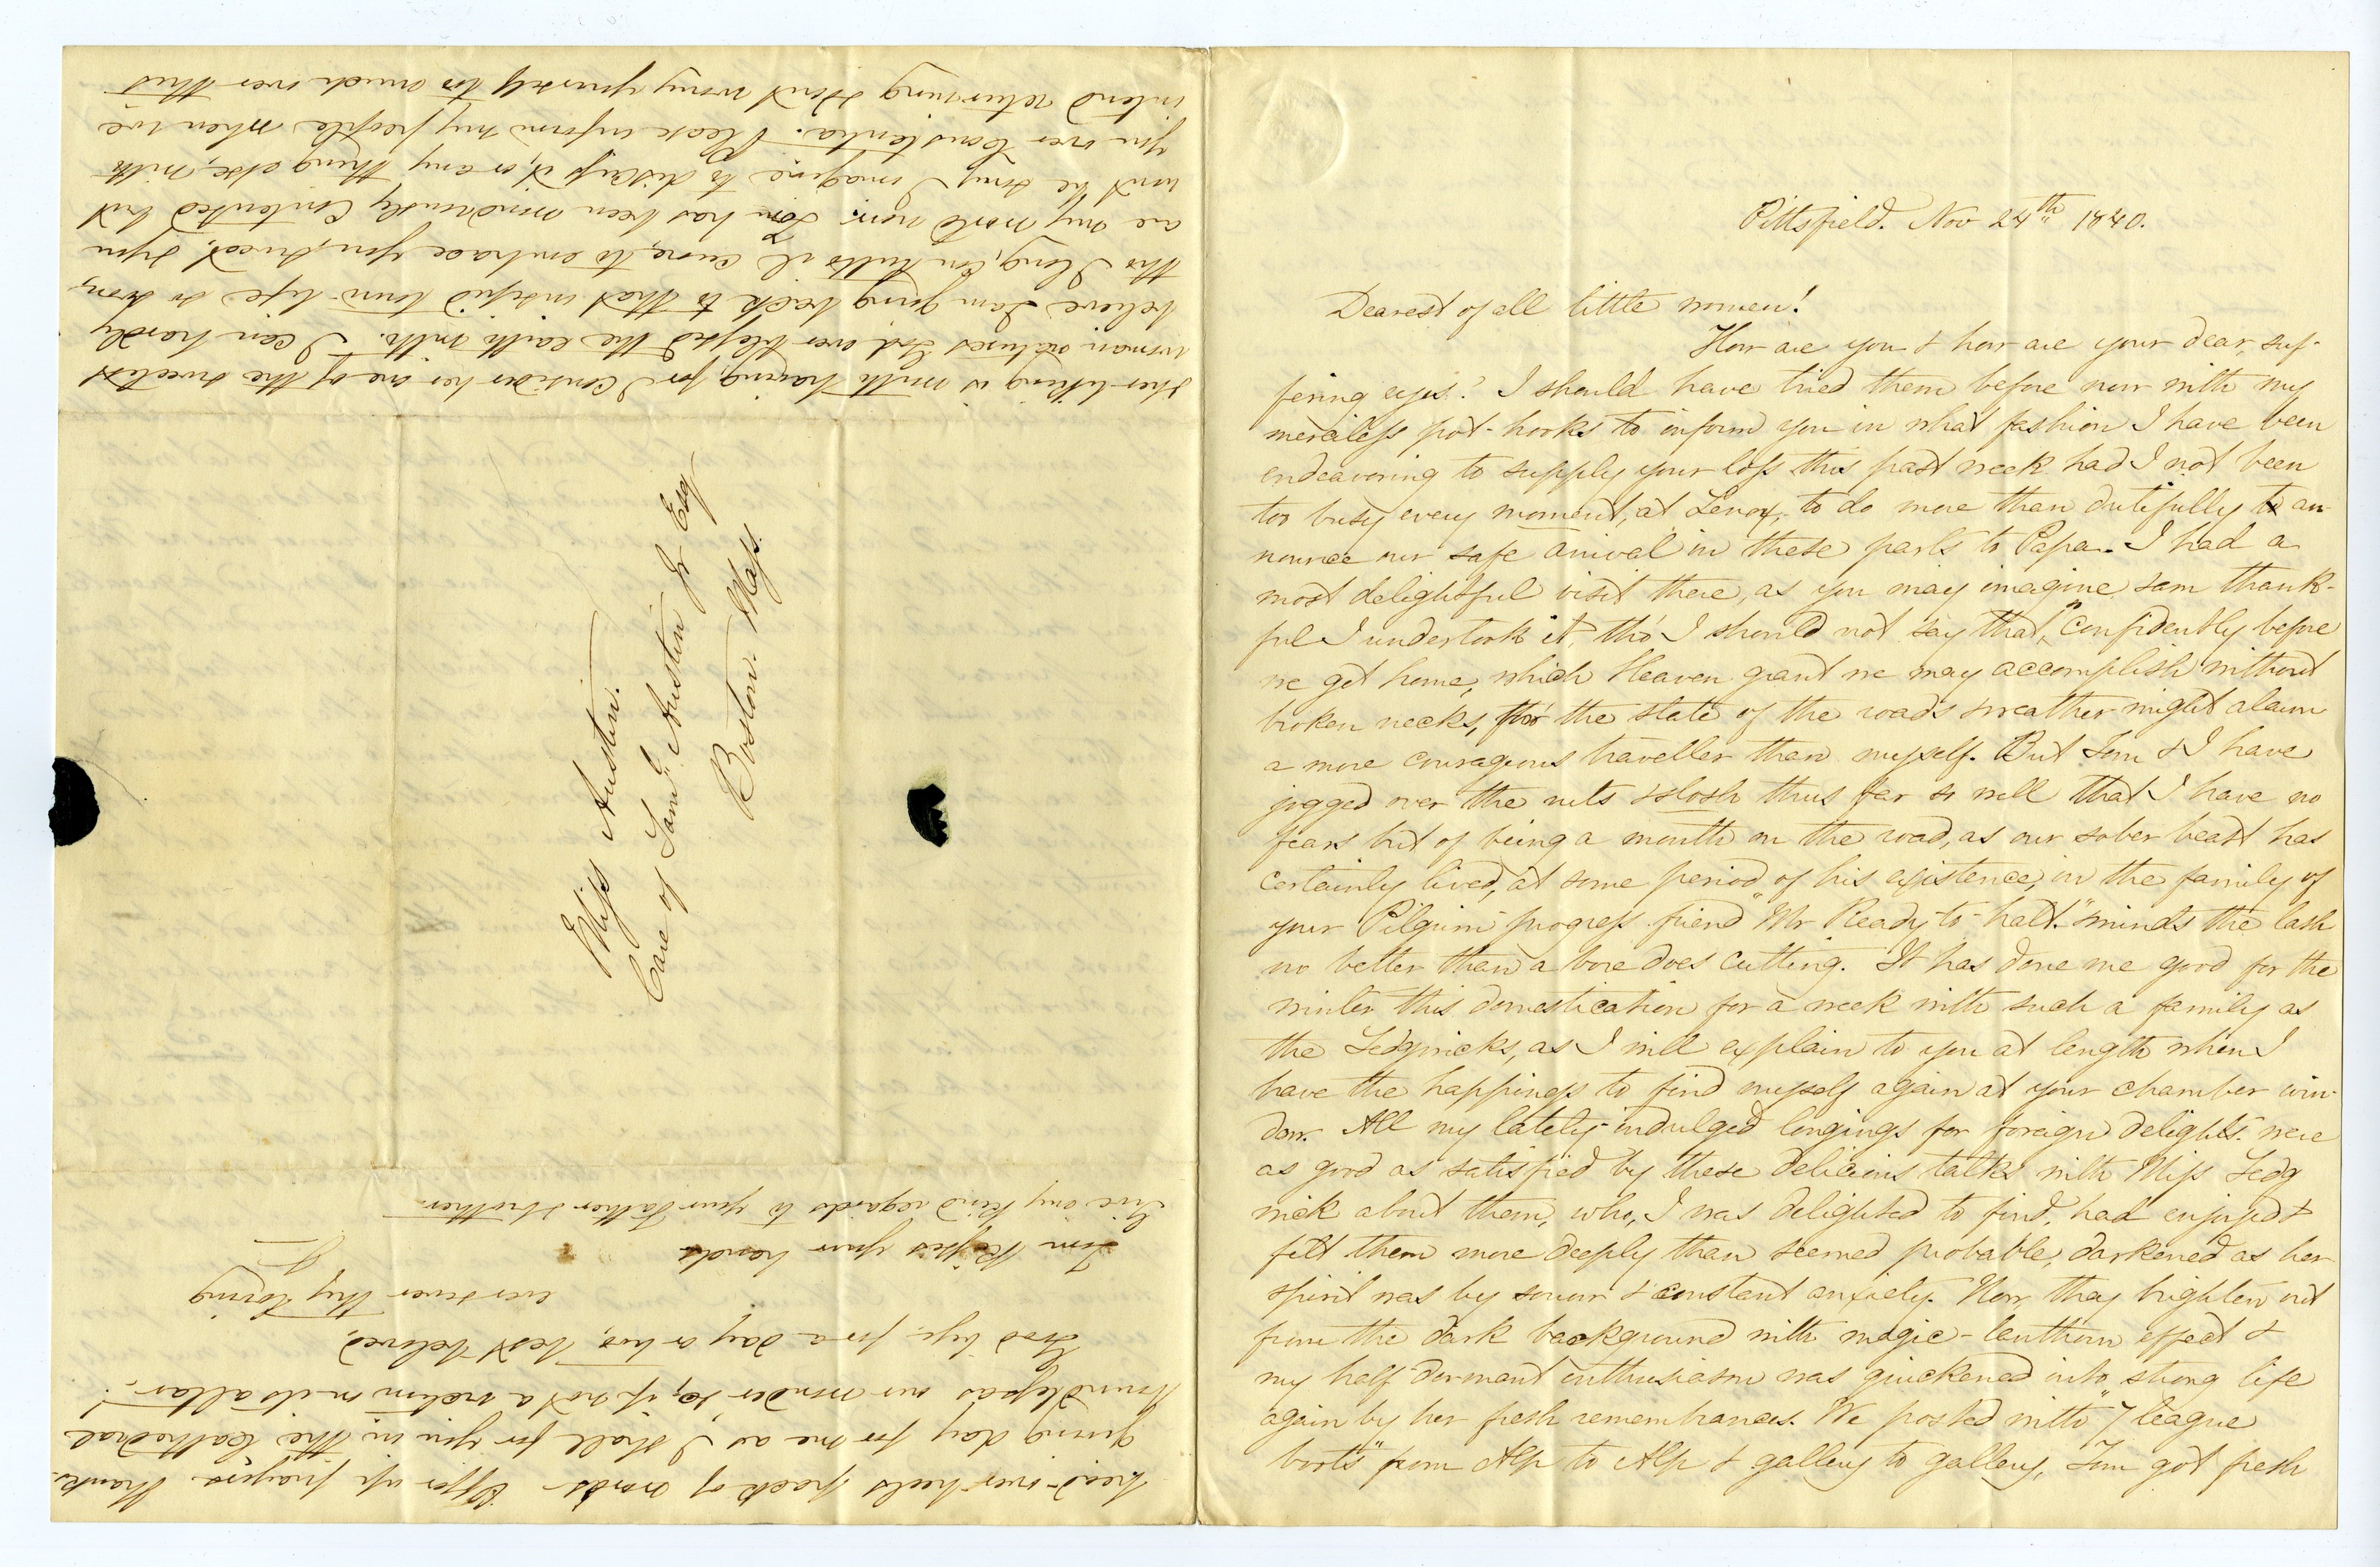 Pittsfield. Nov 24th 1840.
Dearest of all little women!
How are you & how are your dear, suf-
fering eyes? I should have tried them before now with my
merciless pot-hooks to inform you in what fashion I have been
endeavoring to supply your loss this past week had I not been
too busy every moment, at Lenox, to do more than dutifully to an-
nounce our safe arrival in these parts to Papa. I had a
most delightful visit there, as you may imagine & am thank-
ful I undertook it, tho' I should not say that, confidently before
we get home, which Heaven grant we may accomplish without
broken necks, for the state of the roads & weather might alarm
a more courageous traveller than myself. But Tom & I have
jogged over the ruts & slosh thus far so well that I have no
fears but of being a month on the road, as our sober beast has
certainly lived, at some period of his existence, in the family of
your Pilgrim-progress friend "Mr Ready-to-halt." & minds the lash
no better than a bore does cutting. It has done me good for the
winter this domestication for a week with such a family as
the Sedgwicks, as I will explain to you at length when I
have the happiness to find myself again at your chamber win-
dow. All my lately-indulged longings for foreign delights were
as good as satisfied by these delicious talks with Miss Sedg
wick about them, who, I was delighted to find, had enjoyed &
felt them more deeply than seemed probable, darkened as her
spirit was by sorrow & constant anxiety. Now, they brighten out
from the dark background with magic-lanthorn effect &
my half-dormant enthusiasm was quickened into strong life
again by her fresh remembrances. We posted with "7 league
boots" from Alp to Alp & gallery to gallery, Tom got fresh
& her liking is worth having, for I consider her one of the sweetest
woman natures God ever blessed the earth with. I can hardly
believe I am going back to that insipid town-life so soon,
tho I long, con tutto il cuore, to embrace you, sweet, & you
are my world now. Tom has been wondrously contented but
wont be sorry I imagine to discuss it, or any thing else, with
you over Constantia. Please inform my people when we
intend returning & dont worry yourself too much over this
head-over-heels pack of words. Offer up prayers Thanks-
giving day for me as I shall for you in the Cathedral
boundless as our wonder is, if not a victim on its altar!
Good bye, for a day or two, best beloved,
ever & ever thy loving
J.
Tom kisses your hands.
Give my kind regards to your Father & brother.
Miss Austin.
Care of Saml. Austin Jr Esq
Boston. Mass.